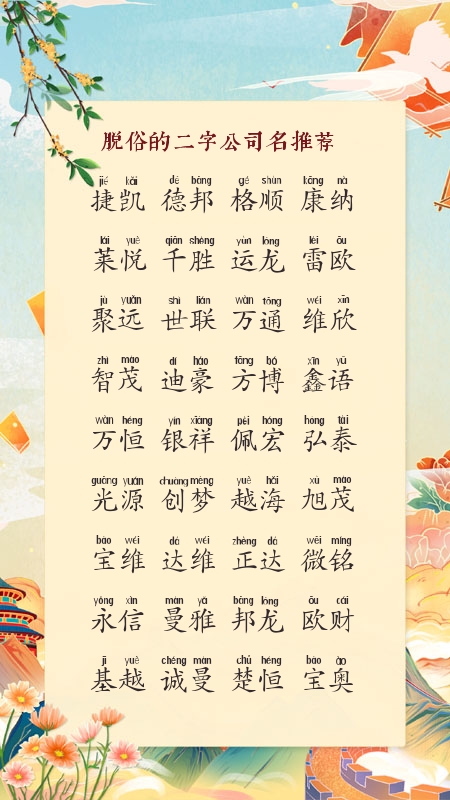 脱俗的二字公司名推荐
jié kǎi dé bāng gé shùn kāng nà
捷凯 德邦 格顺 康纳
lái yuè qiān shèng yùn lóng léi ōu
莱悦 千胜 运龙 雷欧
jù yuǎn shì lián wàn tōng wéi xīn
聚远 世联 万通 维欣
zhì mào dí háo fāng bó xīn yǔ
智茂 迪豪 方博 鑫语
wàn héng yín xiáng pèi hóng hóng tài
万恒 银祥 佩宏 弘泰
guāng yuán chuàng mèng yuè hǎi xù mào
光源 创梦 越海 旭茂
bǎo wéi dá wéi zhèng dá wēi míng
宝维 达维 正达 微铭
yǒng xìn màn yǎ bāng lóng ōu cái
永信 曼雅 邦龙 欧财
jī yuè chéng màn chǔ héng bǎo ào
基越 诚曼 楚恒 宝奥